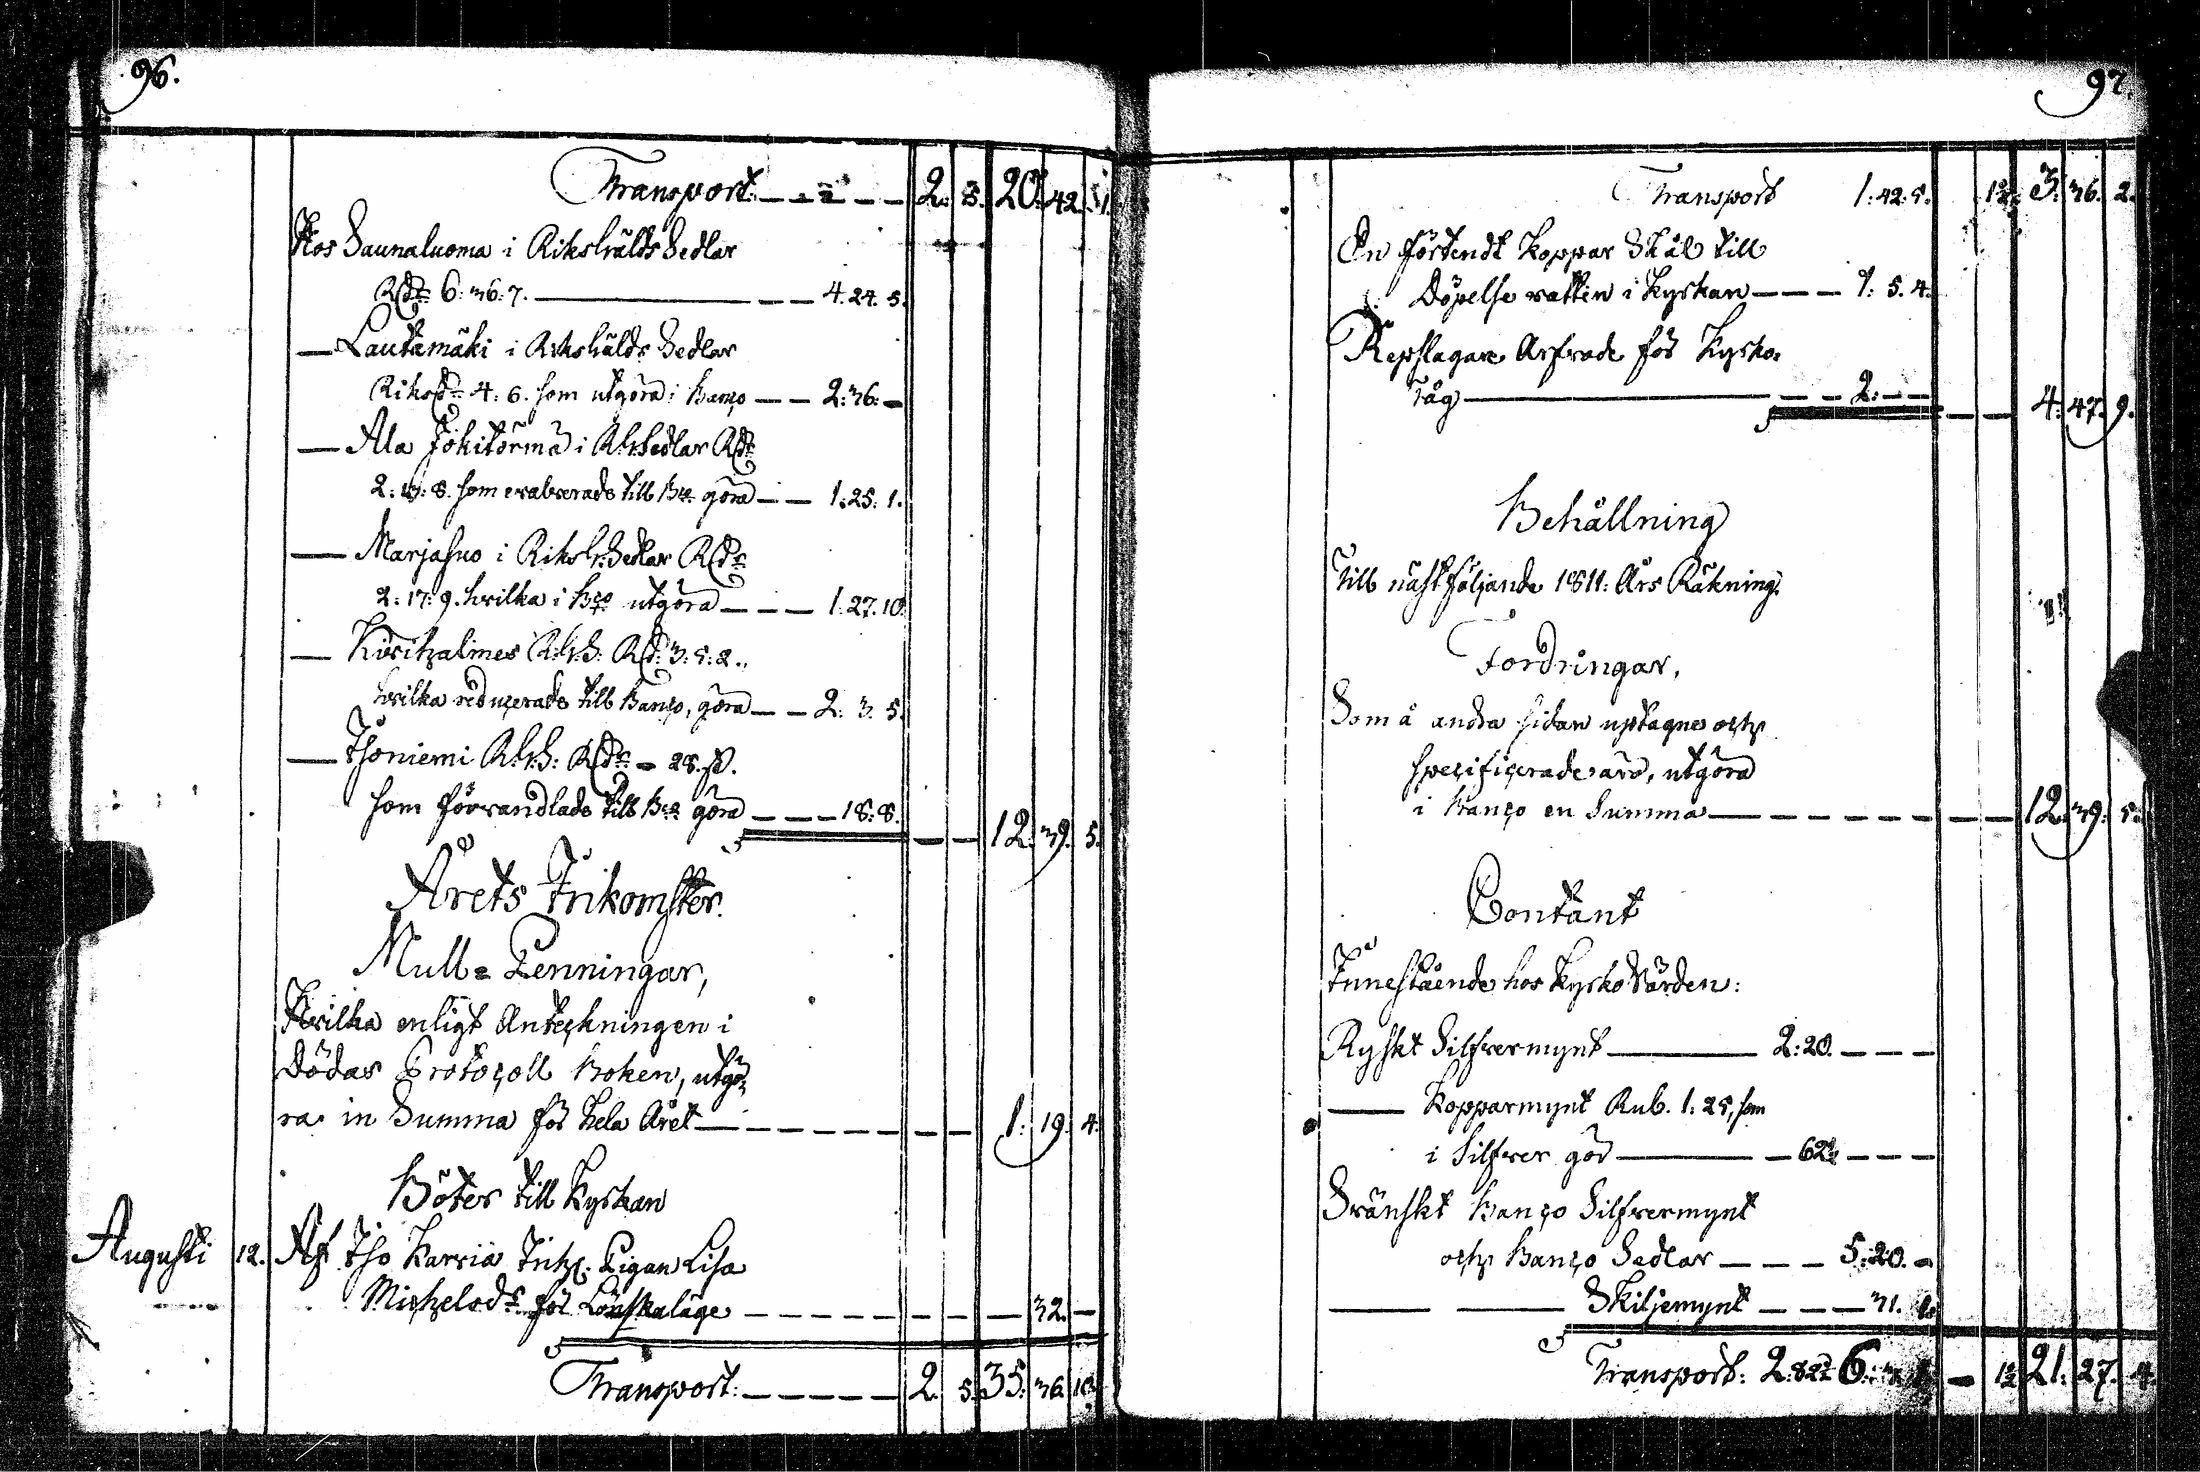 96.
Transport. 2. 5. 20. 42. 1.
Hos Saunaluoma i Rikshälds Sedlar
Rdr 6: 36: 7. 4. 24. 5.
— Lautamäki i Rikshälds Sedlar
Riksdr 4: 6. som utgöra i Banco 2: 36: —
— Ala Jokitörmä i R:h:Sedlar Rdr
2: 13: 8. som till Bco göra 1: 25: 1.
— Marjasuo i Riksh:Sedlar Rdr
2: 17: 9. hvilka i Bco utgöra 1: 27. 10.
— R.h.S. Rd: 3: 5: 2.
hvilka reducerade till Banco, göra 2: 3. 5.
— Isoniemi R.h.S: Rdr — 28. s.
som förvandlade till Bco göra 18: 8.
12. 39. 5.
Årets Inkomster.
Mull= Penningar,
Hvilka enligt Anteckningen i
Dödas Protocoll Boken, utgö=
ra in Summa för hela Året 1: 19. 4.
Böter till Kyrkan
Augusti 12. Af Iso Karvia Inh. Pigan Lisa
Michelsdr för Lönskaläge 32. —
Transport: 2. 5. 35. 36. 10.
97.
Transport 1: 42: 5. 1 1/2 3. 36. 2.
En förtendt Koppar Skål till
Döpelse vattn i Kyrkan 1: 5. 4.
Repslagare Arfvade för Kyrko=
Tåg 2: — —
4: 47. 9.
Behållning
Till nästföljande 1811: Års Räkning.
Fordringar,
Som å andra sidan uptagne och
specificerade äro, utgöra
i Banco en Summa 12. 39. 5.
Contant
Innestående hos Kyrko Värden:
Ryskt Silfvermynt 2: 20. — — —
— Kopparmynt Rub. 1: 25, som
i Silfver gör — 62 1/2 — — —
Svänskt Banco Silfvermynt
och Banco Sedlar 5: 20. —
— — Skiljemynt 31.
Transport: 2: 82 1/2 6: — 1 1/2 21: 27. 4.